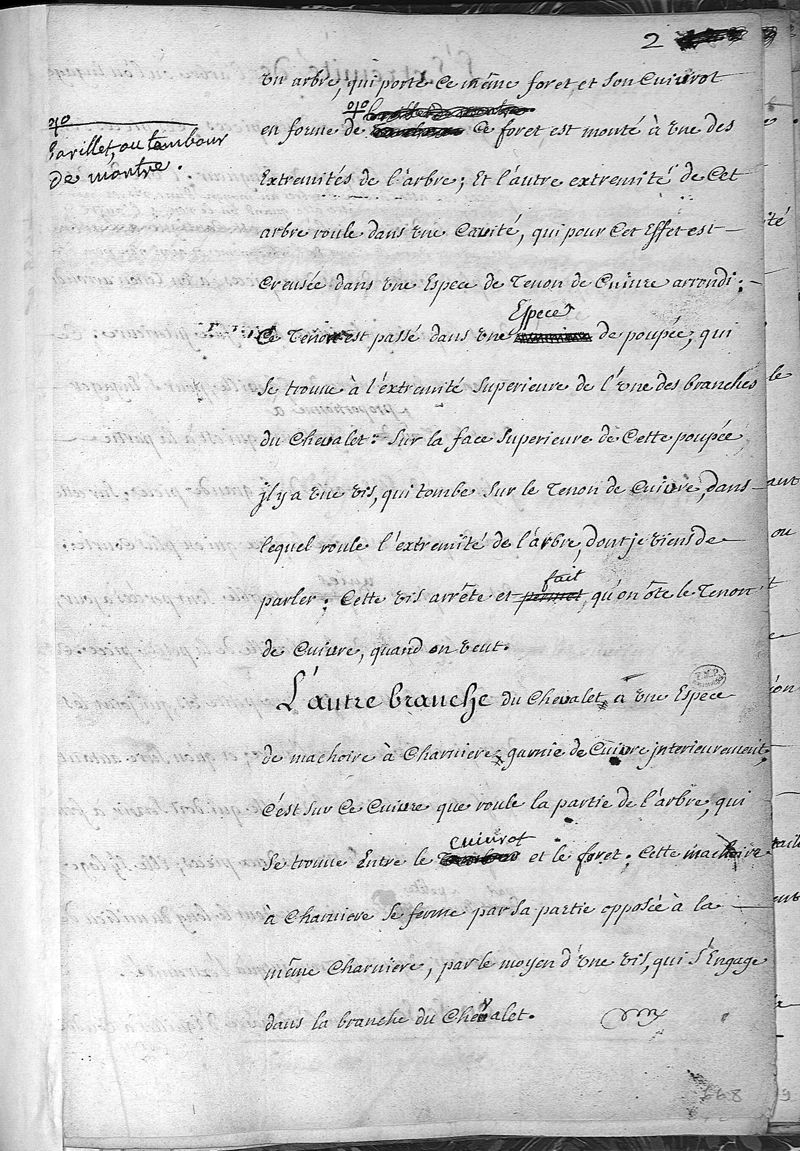 2
un arbre, qui porte ce même foret et son Cuivrot
en forme de ce foret est monté à une des
barillet, ou tambour
de montre.
Extremités de l'arbre; Et l'autre extremité de Cet
arbre roule dans une Cavité, qui pour Cet Effet est —
Creusée dans une Espece de Tenon de Cuivre arrondi; —
Ce Tenon est passé dans une Espece de poupée, qui
se trouve à l'extremité superieure de l'une des branches
du Chevalet: sur la face superieure de Cette poupée,
jl y a une vis, qui tombe sur le Tenon de Cuivre, dans —
lequel roule l'extremité de l'arbre, dont je viens de —
parler; Cette vis arrête et permet fait, qu'on ôte le Tenon
de Cuivre, quand on veut.
L'autre branche du Chevalet, a une Espece
de machoire à Charniere, garnie de Cuivre jnterieurement,
C'est sur Ce Cuivre que roule la partie de l'arbre, qui
se trouve Entre le cuivrot et le foret; Cette machoire
à Charniere se ferme par sa partie opposée à la —
même Charniere, par le moyen d'une vis, qui s'Engage
dans la branche du Chevalet.
668